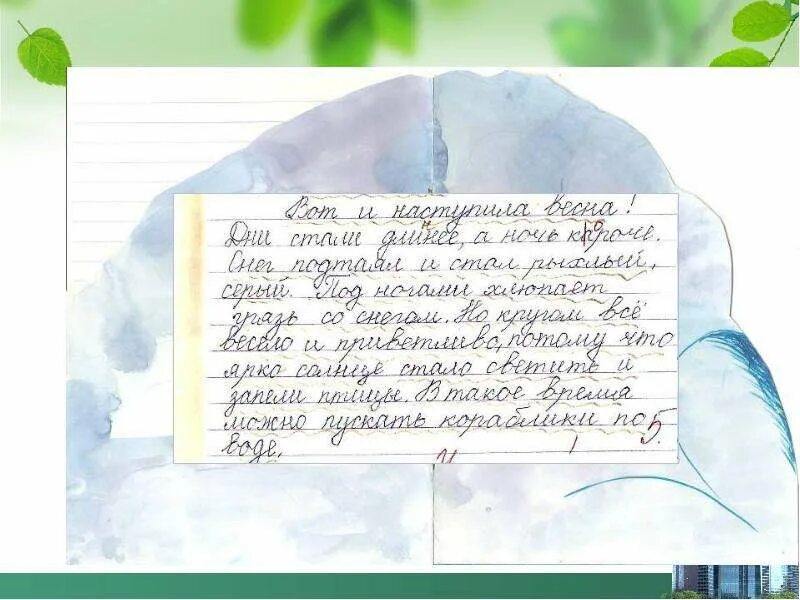 Вот и наступила весна!
Дни стали длинее, а ночь короче.
Снег подтаял и стал рыхлый,
серый. Под ногами хлюпает
грязь со снегом. Но кругом всё
весело и приветливо, потому что
ярко солнце стало светить и
запели птицы. В такое время
можно пускать кораблики по
воде.
5.